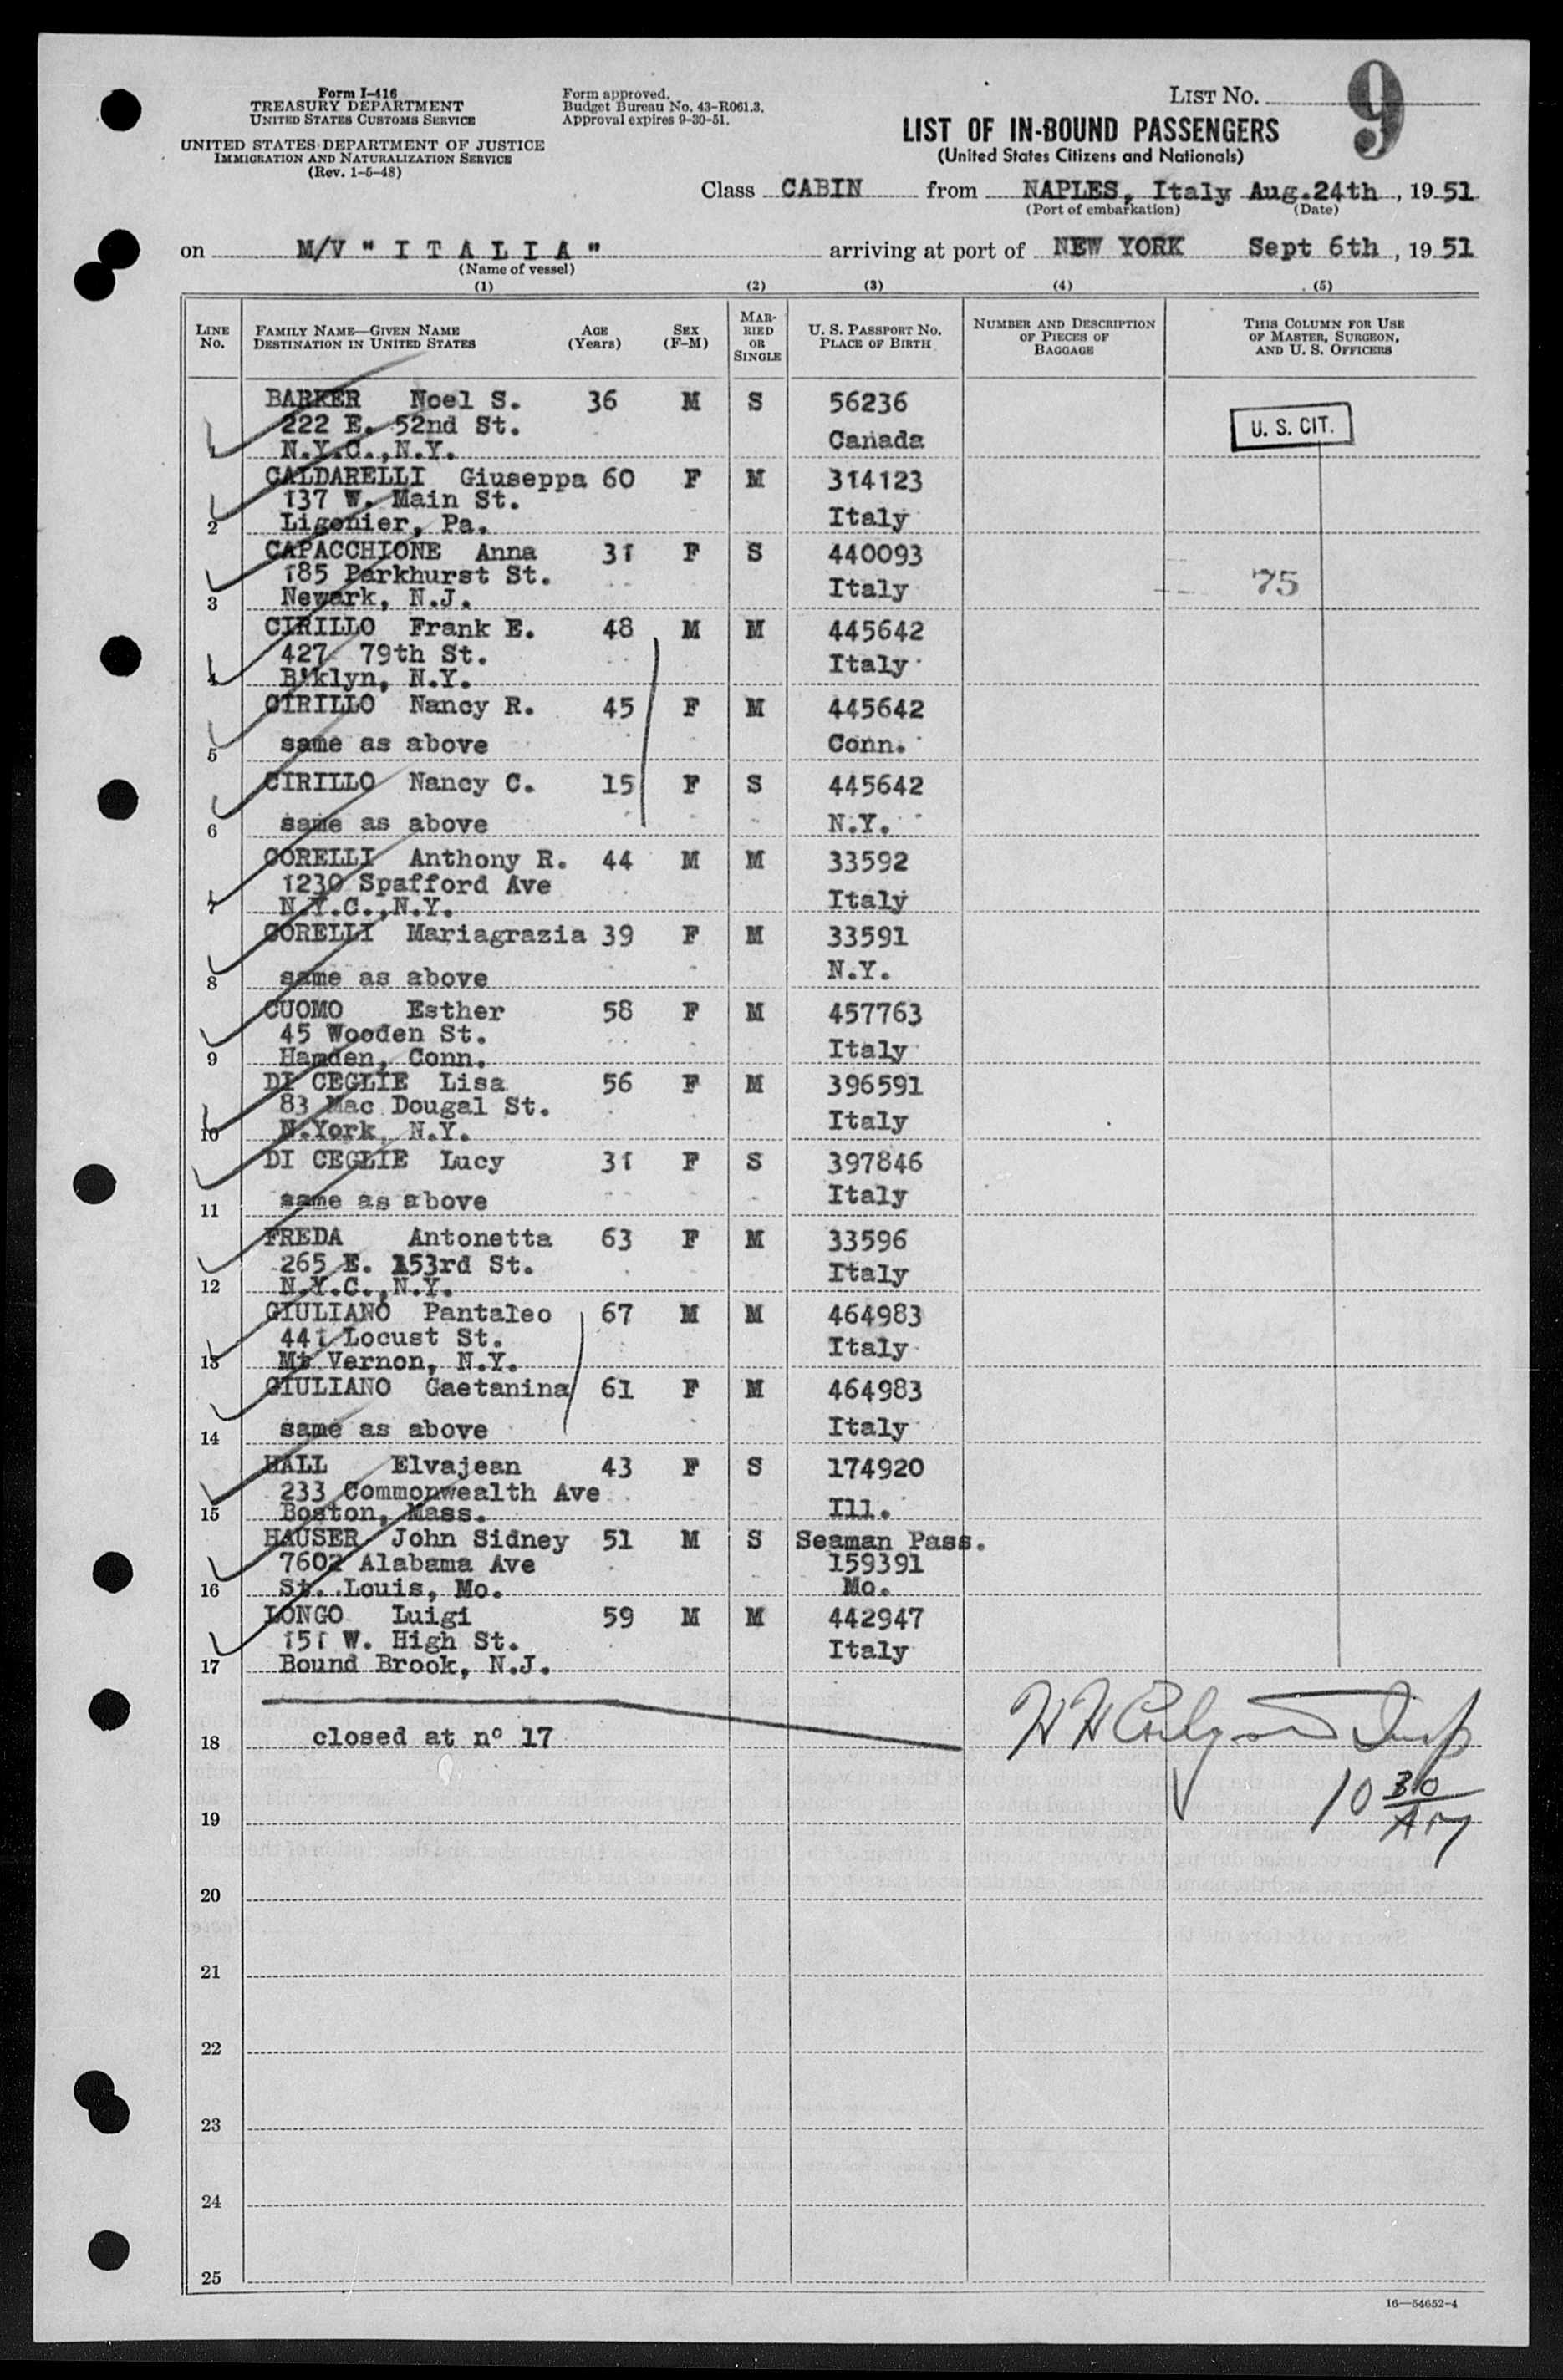 Form I-416
TREASURY DEPARTMENT
UNITED STATES CUSTOMS SERVICE
UNITED STATES DEPARTMENT OF JUSTICE
IMMIGRATION AND NATURALIZATION SERVICE
(Rev. 1-5-48)
Form approved.
Budget Bureau No. 43-R061.3.
Approval expires 9-30-51.
LIST NO. 9
LIST OF IN-BOUND PASSENGERS
(United States Citizens and Nationals)
Class CABIN from NAPLES, Italy Aug.24th, 1951
(Port of embarkation) (Date)
on M/V " I T A L I A " arriving at port of NEW YORK Sept 6th, 1951
(Name of vessel)
(1) (2) (3) (4) (5)
LINE NO. FAMILY NAME—GIVEN NAME DESTINATION IN UNITED STATES AGE (Years) SEX (F-M) MARRIED OR SINGLE U. S. PASSPORT NO. PLACE OF BIRTH NUMBER AND DESCRIPTION OF PIECES OF BAGGAGE THIS COLUMN FOR USE OF MASTER, SURGEON, AND U. S. OFFICERS
BARKER Noel S. 36 M S 56236
222 E. 52nd St. Canada U. S. CIT.
1 N.Y.C.,N.Y.
CALDARELLI Giuseppa 60 F M 314123
137 W. Main St.
2 Ligonier, Pa. Italy
CAPACCHIONE Anna 31 F S 440093
185 Parkhurst St. Italy 75
3 Newark, N.J.
CIRILLO Frank E. 48 M M 445642
427 79th St. Italy
4 B'klyn, N.Y.
CIRILLO Nancy R. 45 F M 445642
5 same as above Conn.
CIRILLO Nancy C. 15 F S 445642
6 same as above N.Y.
CORELLI Anthony R. 44 M M 33592
1230 Spafford Ave
7 N.Y.C.,N.Y. Italy
CORELLI Mariagrazia 39 F M 33591
8 same as above N.Y.
CUOMO Esther 58 F M 457763
45 Wooden St.
9 Hamden, Conn. Italy
DI CEGLIE Lisa 56 F M 396591
83 Mac Dougal St. Italy
10 N.York, N.Y.
DI CEGLIE Lucy 31 F S 397846
11 same as above Italy
FREDA Antonetta 63 F M 33596
265 E. 153rd St. Italy
12 N.Y.C.,N.Y.
GIULIANO Pantaleo 67 M M 464983
441 Locust St. Italy
13 Mt Vernon, N.Y.
GIULIANO Gaetanina 61 F M 464983
14 same as above Italy
HALL Elvajean 43 F S 174920
233 Commonwealth Ave
15 Boston, Mass. Ill.
HAUSER John Sidney 51 M S Seaman Pass.
7602 Alabama Ave 159391
16 St. Louis, Mo. Mo.
LONGO Luigi 59 M M 442947
151 W. High St. Italy
17 Bound Brook, N.J.
18 closed at nº 17
10 30 AM
19
20
21
22
23
24
25
16—54652-4